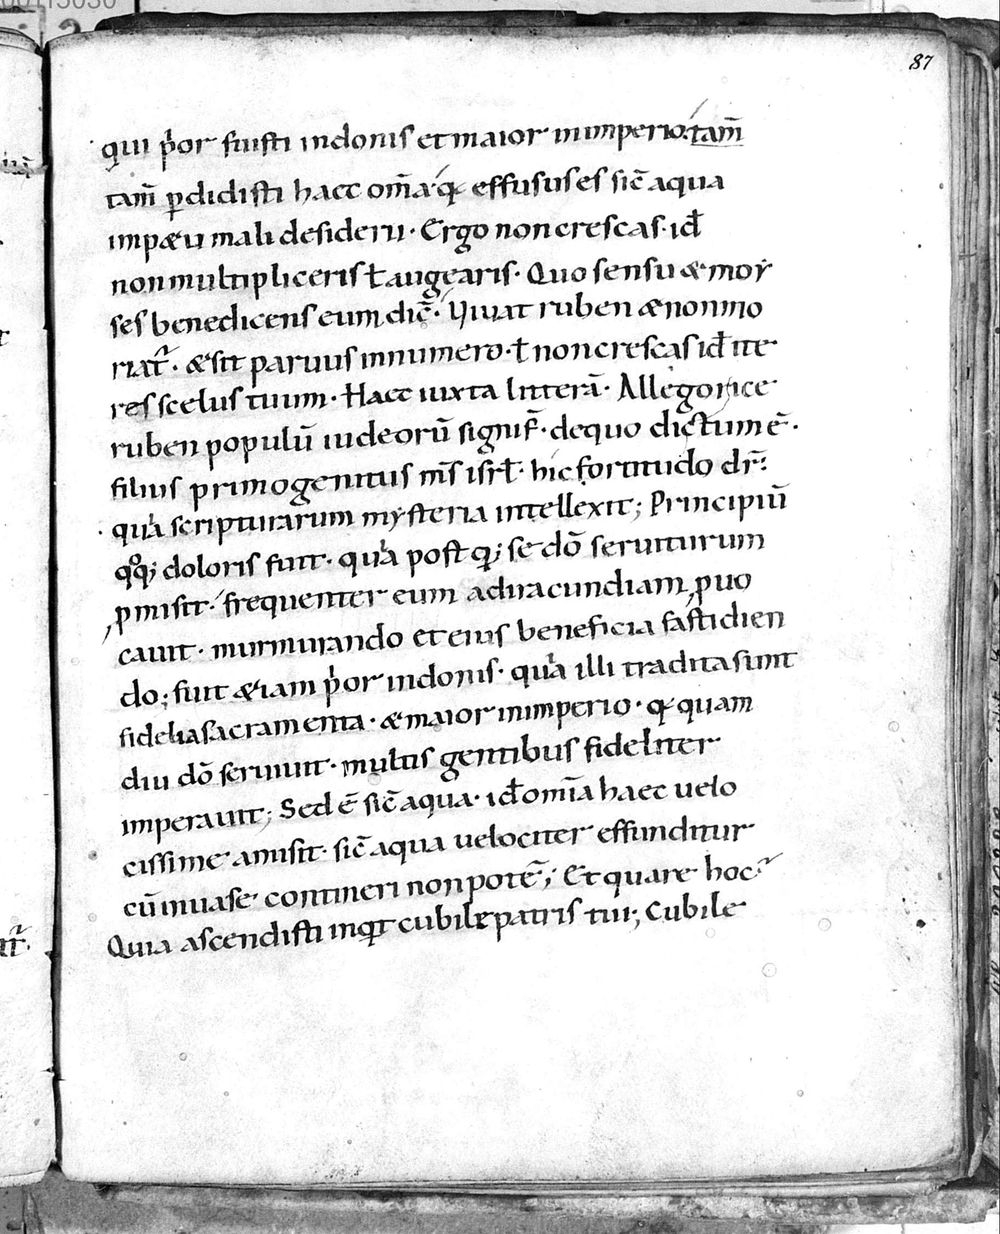 87
qui p̍or fuisti indonis et maior inimperio. tam̄
tam̄ ꝑdidisti haec om̄a q̨ effusus es sic̄ aqua
impӕtu mali desiderii · Ergo non crescas · id̄
non multipliceris ł augearis · Quo sensu & moy
ses benedicens eum dic̄ · Viuat ruben & non mo
riat᷑ · & sit paruus in numero · ł non crescas id̄ ite
res scelus tuum · Haec iuxta litterā · Allegorice
ruben populū iudeorū signif̄ · de quo dictum ē ·
filius primogenitus m̄s isrł · hic fortitudo dr̄ ·
quia scripturarum mysteria intellexit ; Principiū
qoq; doloris fuit · quia postq; se dō seruiturum
ꝓmisit · frequenter eum ad iracundiam ꝓuo
cauit · murmurando et eius beneficia fastidien
do ; fuit & iam p̍or in donis · quia illi tradita sunt
fidelia sacramenta · & maior in imperio · q̨ quam
diu dō seruiuit · multis gentibus fideliter
imperauit ; Sed ē sic̄ aqua · id̄ om̄ia haec uelo
cissime amisit · sic̄ aqua uelociter effunditur
cū in uase contineri non potē ; Et quare hoc
Quia ascendisti inqt cubile patris tui ; Cubile